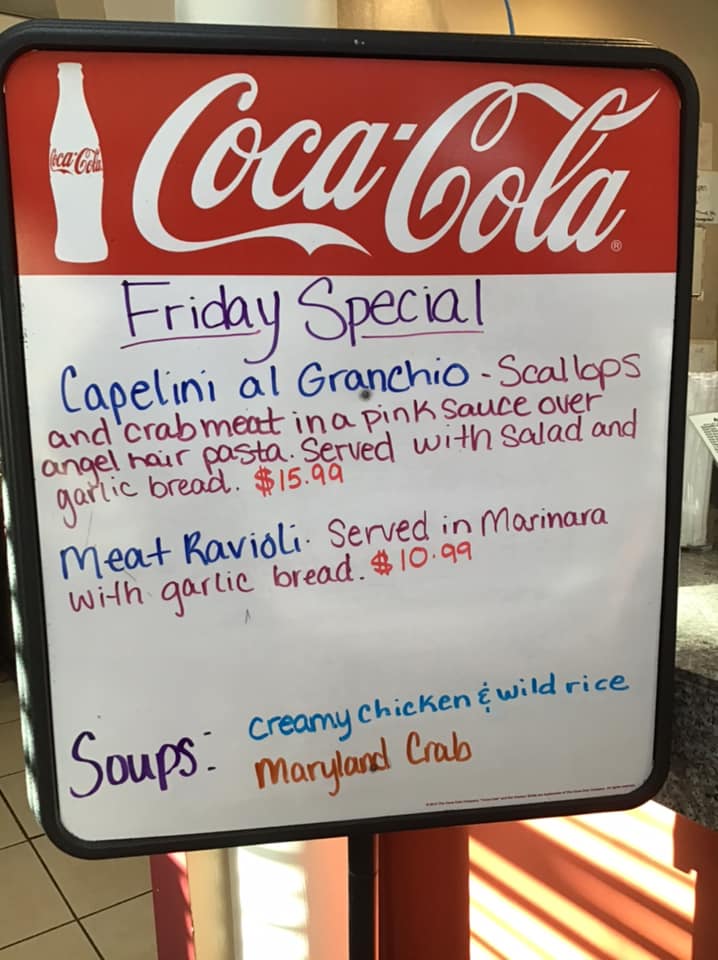 Coca-Cola
Coca-Cola®
Friday Special
Capelini al Granchio - Scallops
and crabmeat in a pink sauce over
angel hair pasta. Served with salad and
garlic bread. $15.99
Meat Ravioli. Served in Marinara
with garlic bread. $10.99
creamy chicken & wild rice
Soups:
Maryland Crab